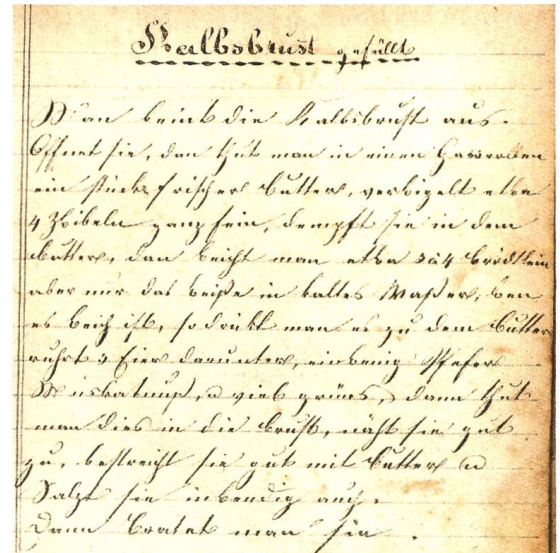 Kalbsbrust gefüllt
Man beint die Kalbsbrust aus.
Öffnet sie, dan thut man in einen Gasserollen
ein stück frischer butter, verwigelt etwa
4 Zwibeln ganz fein, dempft sie in dem
butter, dan weicht man etwa 3 à 4 brödtlein
aber nur das weiße in kaltes Waßer, wen
es weich ist, so drükt man es zu dem butter
rührt 3 Eier darunter, ein wenig Pfefer
Muskatnuß, u viel grüns, dann thut
man dies in die brust, näht sie gut
zu, bestreicht sie gut mit butter u
Salzt sie inwendig auch.
Dann bratet man sie.